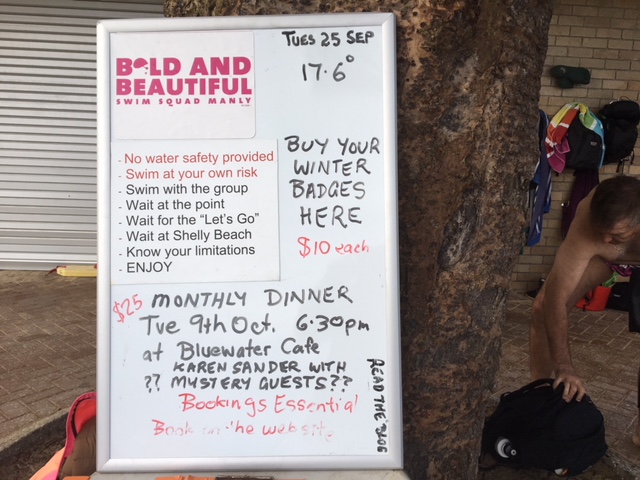 BOLD AND
BEAUTIFUL
SWIM SQUAD MANLY
- No water safety provided
- Swim at your own risk
- Swim with the group
- Wait at the point
- Wait for the “Let's Go”
- Wait at Shelly Beach
- Know your limitations
- ENJOY
TUES 25 SEP
17.6°
BUY YOUR
WINTER
BADGES
HERE
$10 each
$25 MONTHLY DINNER
Tue 9th Oct. 6.30pm
at Bluewater Cafe
KAREN SANDER WITH
?? MYSTERY GUESTS??
Bookings Essential
Book on the website
READ THE BLOG